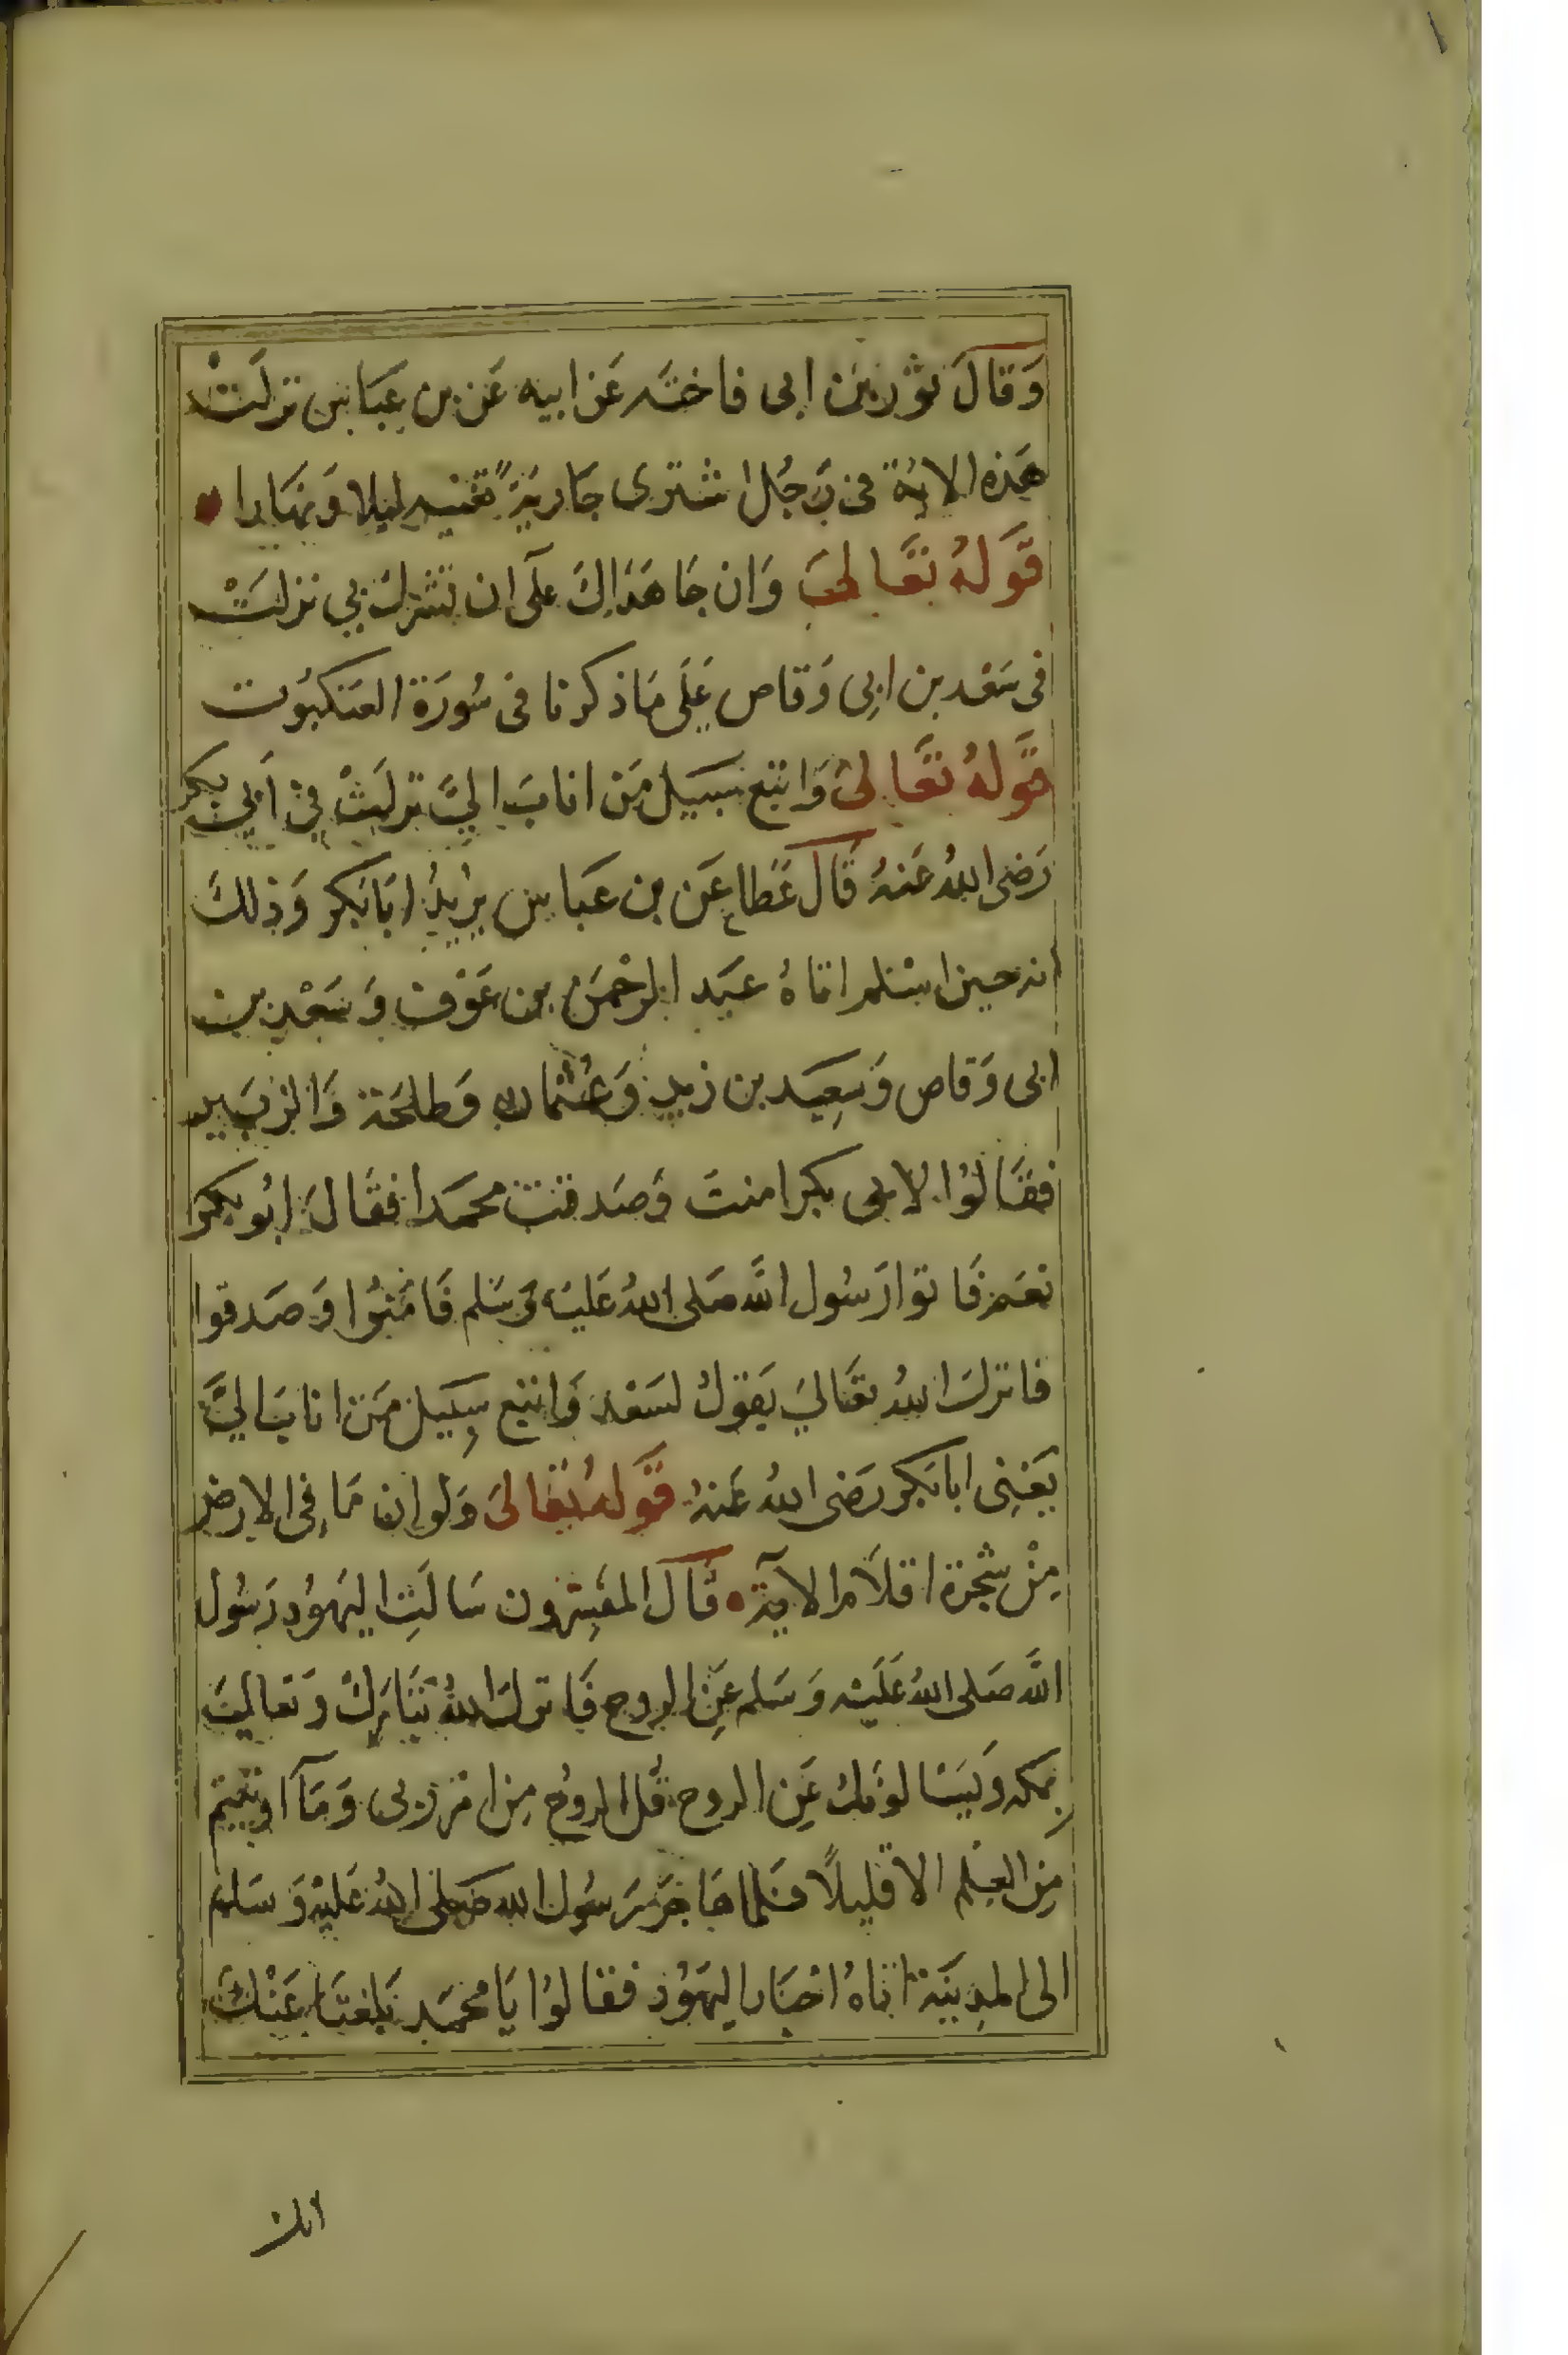 وَقالَ ثورُ بْنَ ابى فاختَه عَن ابيه عَن بن عِبَاسٍ نزلَتْ
هَذه الايَة فى رَجُل اشترى جَاريَةً تغنيه ليلا وَنهَارا
قَولهُ تعَالىَ وَان جَاهَدَاكَ عَلَى ان تشرك بي نزلتْ
فى سَعْد بن ابى وَقاص عَلَى مَا ذكرنا فى سُورَة العَنكبُوت
قَولهُ تعَالىَ وَاتبع سَبيل مَن انابَ اليَّ نزلَتْ فِي اَبى بكر
رَضىَ اللهُ عَنهُ قَالَ عَطاء عَن بن عَباسٍ يُريدُ ابَا بَكر وَذلكَ
انه حين اسْلم اتاهُ عَبد الرحْمَن بن عَوْف وَ سَعْد بن
ابى وَقاص وَسَعِيد بن زيد وَعُثمان وَطلحَة وَالزبَير
فقَالوُا لابى بكر امنتَ وَصَدقت محمَدا فقَالَ ابُو بكر
نعَم فَاتوا رَسُول اللَّه صَلى اللهُ عَليْه وَسَلم فَامَنُوا وَصَدقوا
فانزلَ اللهُ تعَاليَ يَقولُ لسَعْد وَاتبع سَبيل مَن انابَ اليَّ
يَعْنِى ابا بَكر رَضى اللهُ عَنهُ قَولهُ تعَالىَ وَلو ان مَا فِى الارض
مِنْ شَجَرة اقلَام الآية قَالَ المفَسِرون سَالَتِ اليَهُود رَسُول
اللَّه صَلى اللهُ عَلَيْه وَسَلم عَنِ الروح فَانزلَ اللهُ تبَاركَ وَتعَاليَ
بمكه وَيَسَالونكَ عَنِ الروح قُل الروُح مِن امْر رَبى وَمَآ اوتيتم
مِن العِلم الا قليلاً فَلما هَاجَر رَسُول الله صَلى اللهُ عَليْهِ وَسَلم
الى المدِينَة اتاهُ احْبَار اليَهُود فقالوُا يَا محمَد بَلغنَا عَنْكَ
انك